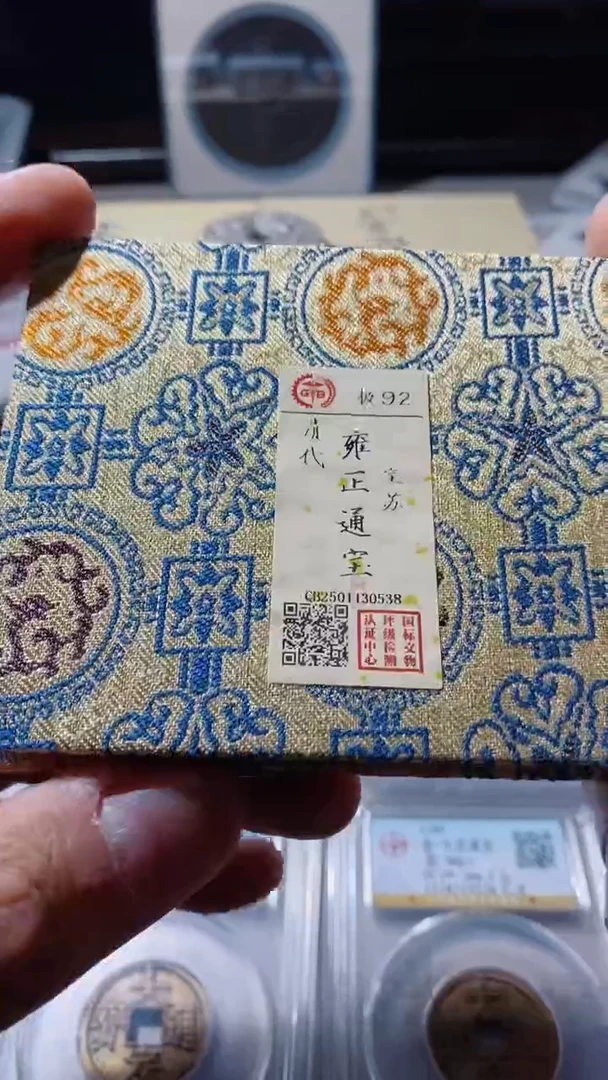 极92
清代
雍正通宝
宝苏
CB2501130538
国标文物
评级检测
认证中心